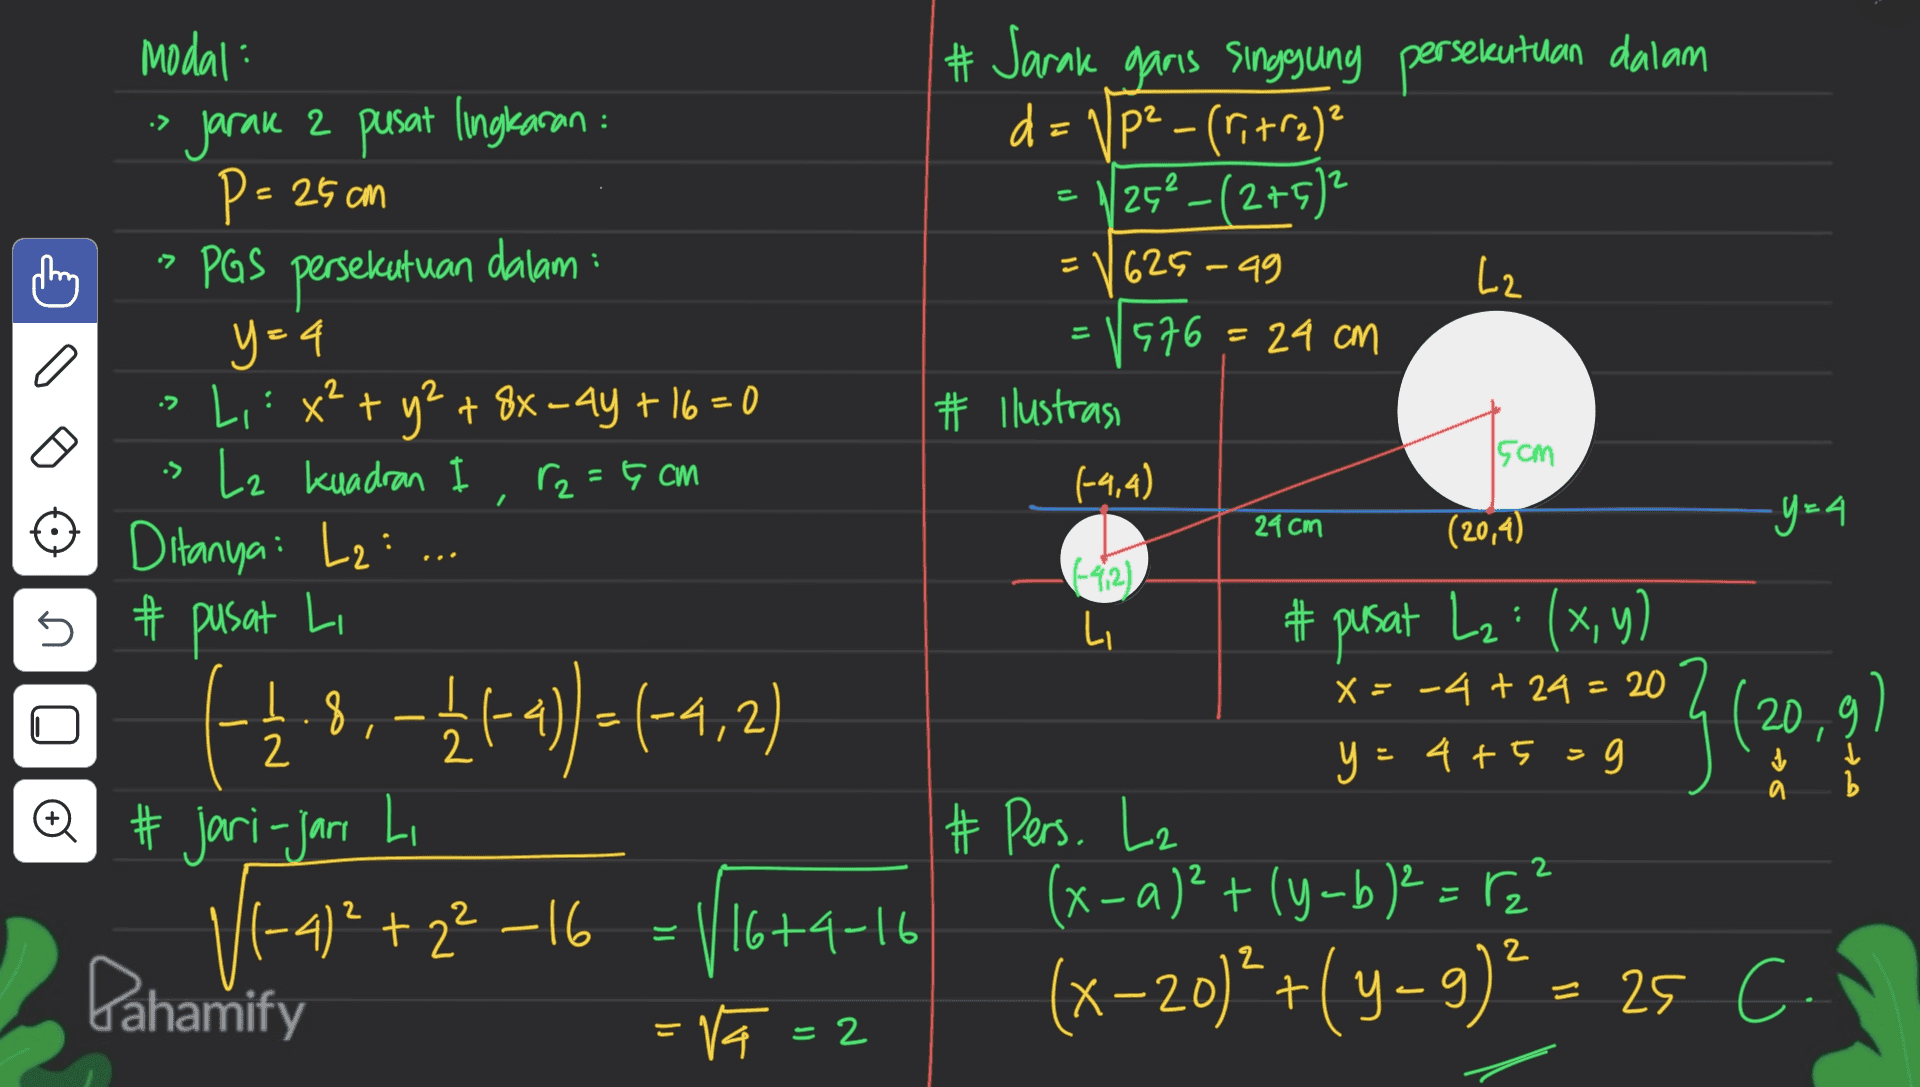 Modal :
.> jarak 2 pusat lingkaran :
P = 25 cm
.> PGS persekutuan dalam :
y = 4
.> L₁ : x² + y² + 8x – 4y + 16 = 0
.> L₂ kuadran I , r₂ = 5 cm
Ditanya : L₂ : ...
# pusat L₁
(–1/2 . 8 , –1/2 (–4)) = (–4, 2)
# jari-jari L₁
√((–4)² + 2² – 16) = √(16+4–16)
= √4 = 2
Pahamify
# Jarak garis singgung persekutuan dalam
d = √(P² – (r₁+r₂)²)
= √(25² – (2+5)²)
= √(625 – 49)
= √576 = 24 cm
# Ilustrasi
L₂
5 cm
(-4,4)
y=4
24 cm
(20,4)
(-4,2)
L₁
# pusat L₂ : (x, y)
x = –4 + 24 = 20
y = 4 + 5 = 9
} (20, 9)
a b
# Pers. L₂
(x – a)² + (y – b)² = r₂²
(x – 20)² + (y – 9)² = 25 C.